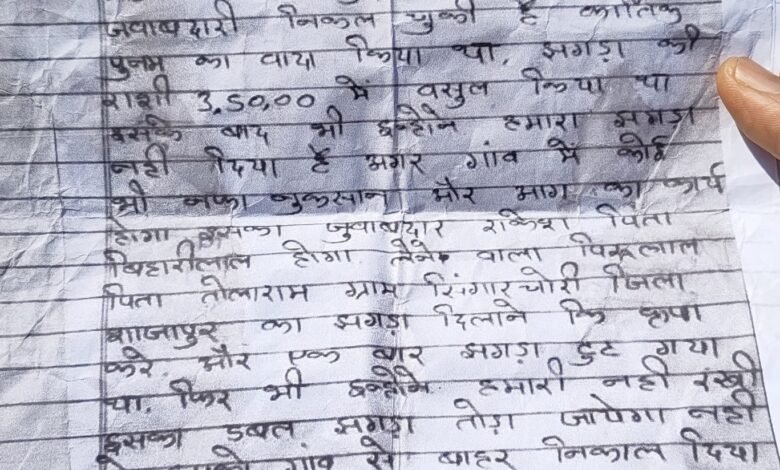 जवाबदारी निकल चुकी है कार्तिक
पुनम का वादा किया था. झगड़ा की
राशी 3,50,00 में वसुल किया था
इसके बाद भी इन्होने हमारा झगड़ा
नहीं दिया है अगर गांव में कोई
भी नफा नुकसान और आग का कार्य
होगा इसका जुवाबदार राकेश पिता
बिहारीलाल होगा लेने वाला
पिता तोलाराम ग्राम सिंगारचोरी जिला
शाजापुर का झगड़ा दिलाने कि कृपा
करे. और एक बार झगड़ा टुट गया
था. फिर भी इन्होने हमारी नही रखी
इसका डबल झगड़ा तोड़ा जायेगा नही
गांव से बाहर निकाल दिया